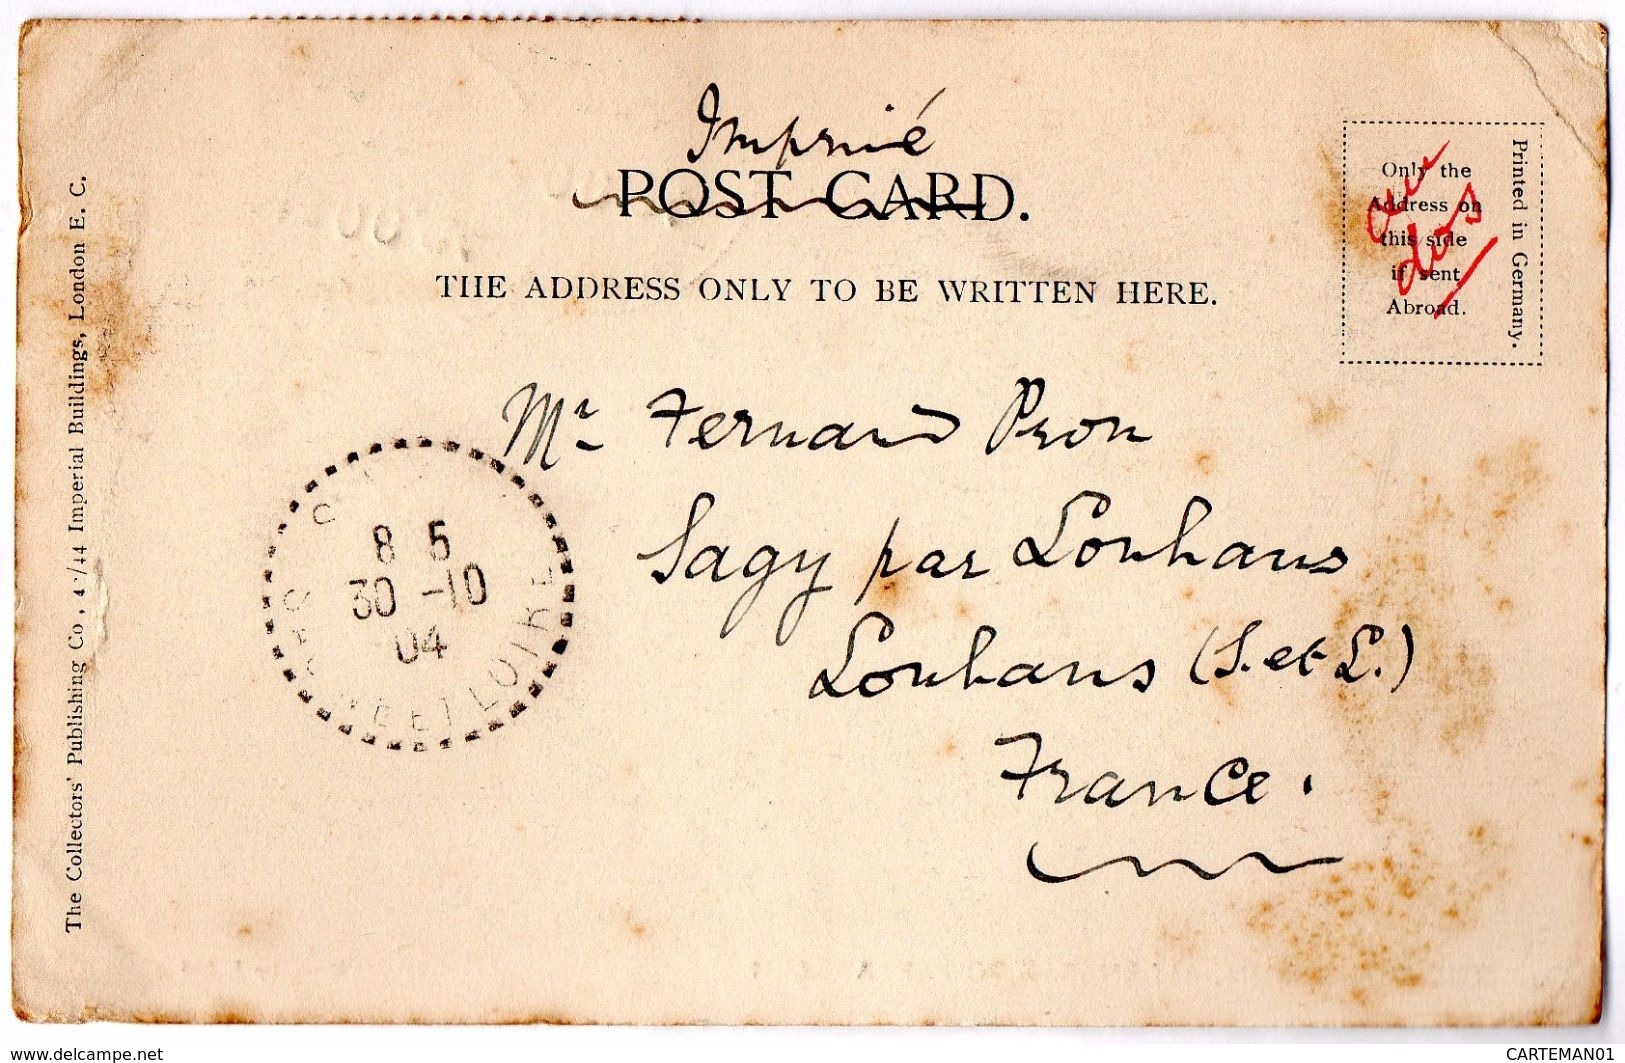 Imprimé
POST CARD.
THE ADDRESS ONLY TO BE WRITTEN HERE.
Only the
Address on
this side
if sent
Abroad.
au
dos
Printed in Germany.
Mr Fernand Pron
Sagy par Louhans
Louhans (S. et L.)
France.
8 5
30 -10
04
ET LOIRE
The Collectors' Publishing Co, /44 Imperial Buildings, London E. C.
www.delcampe.net
CARTEMAN01